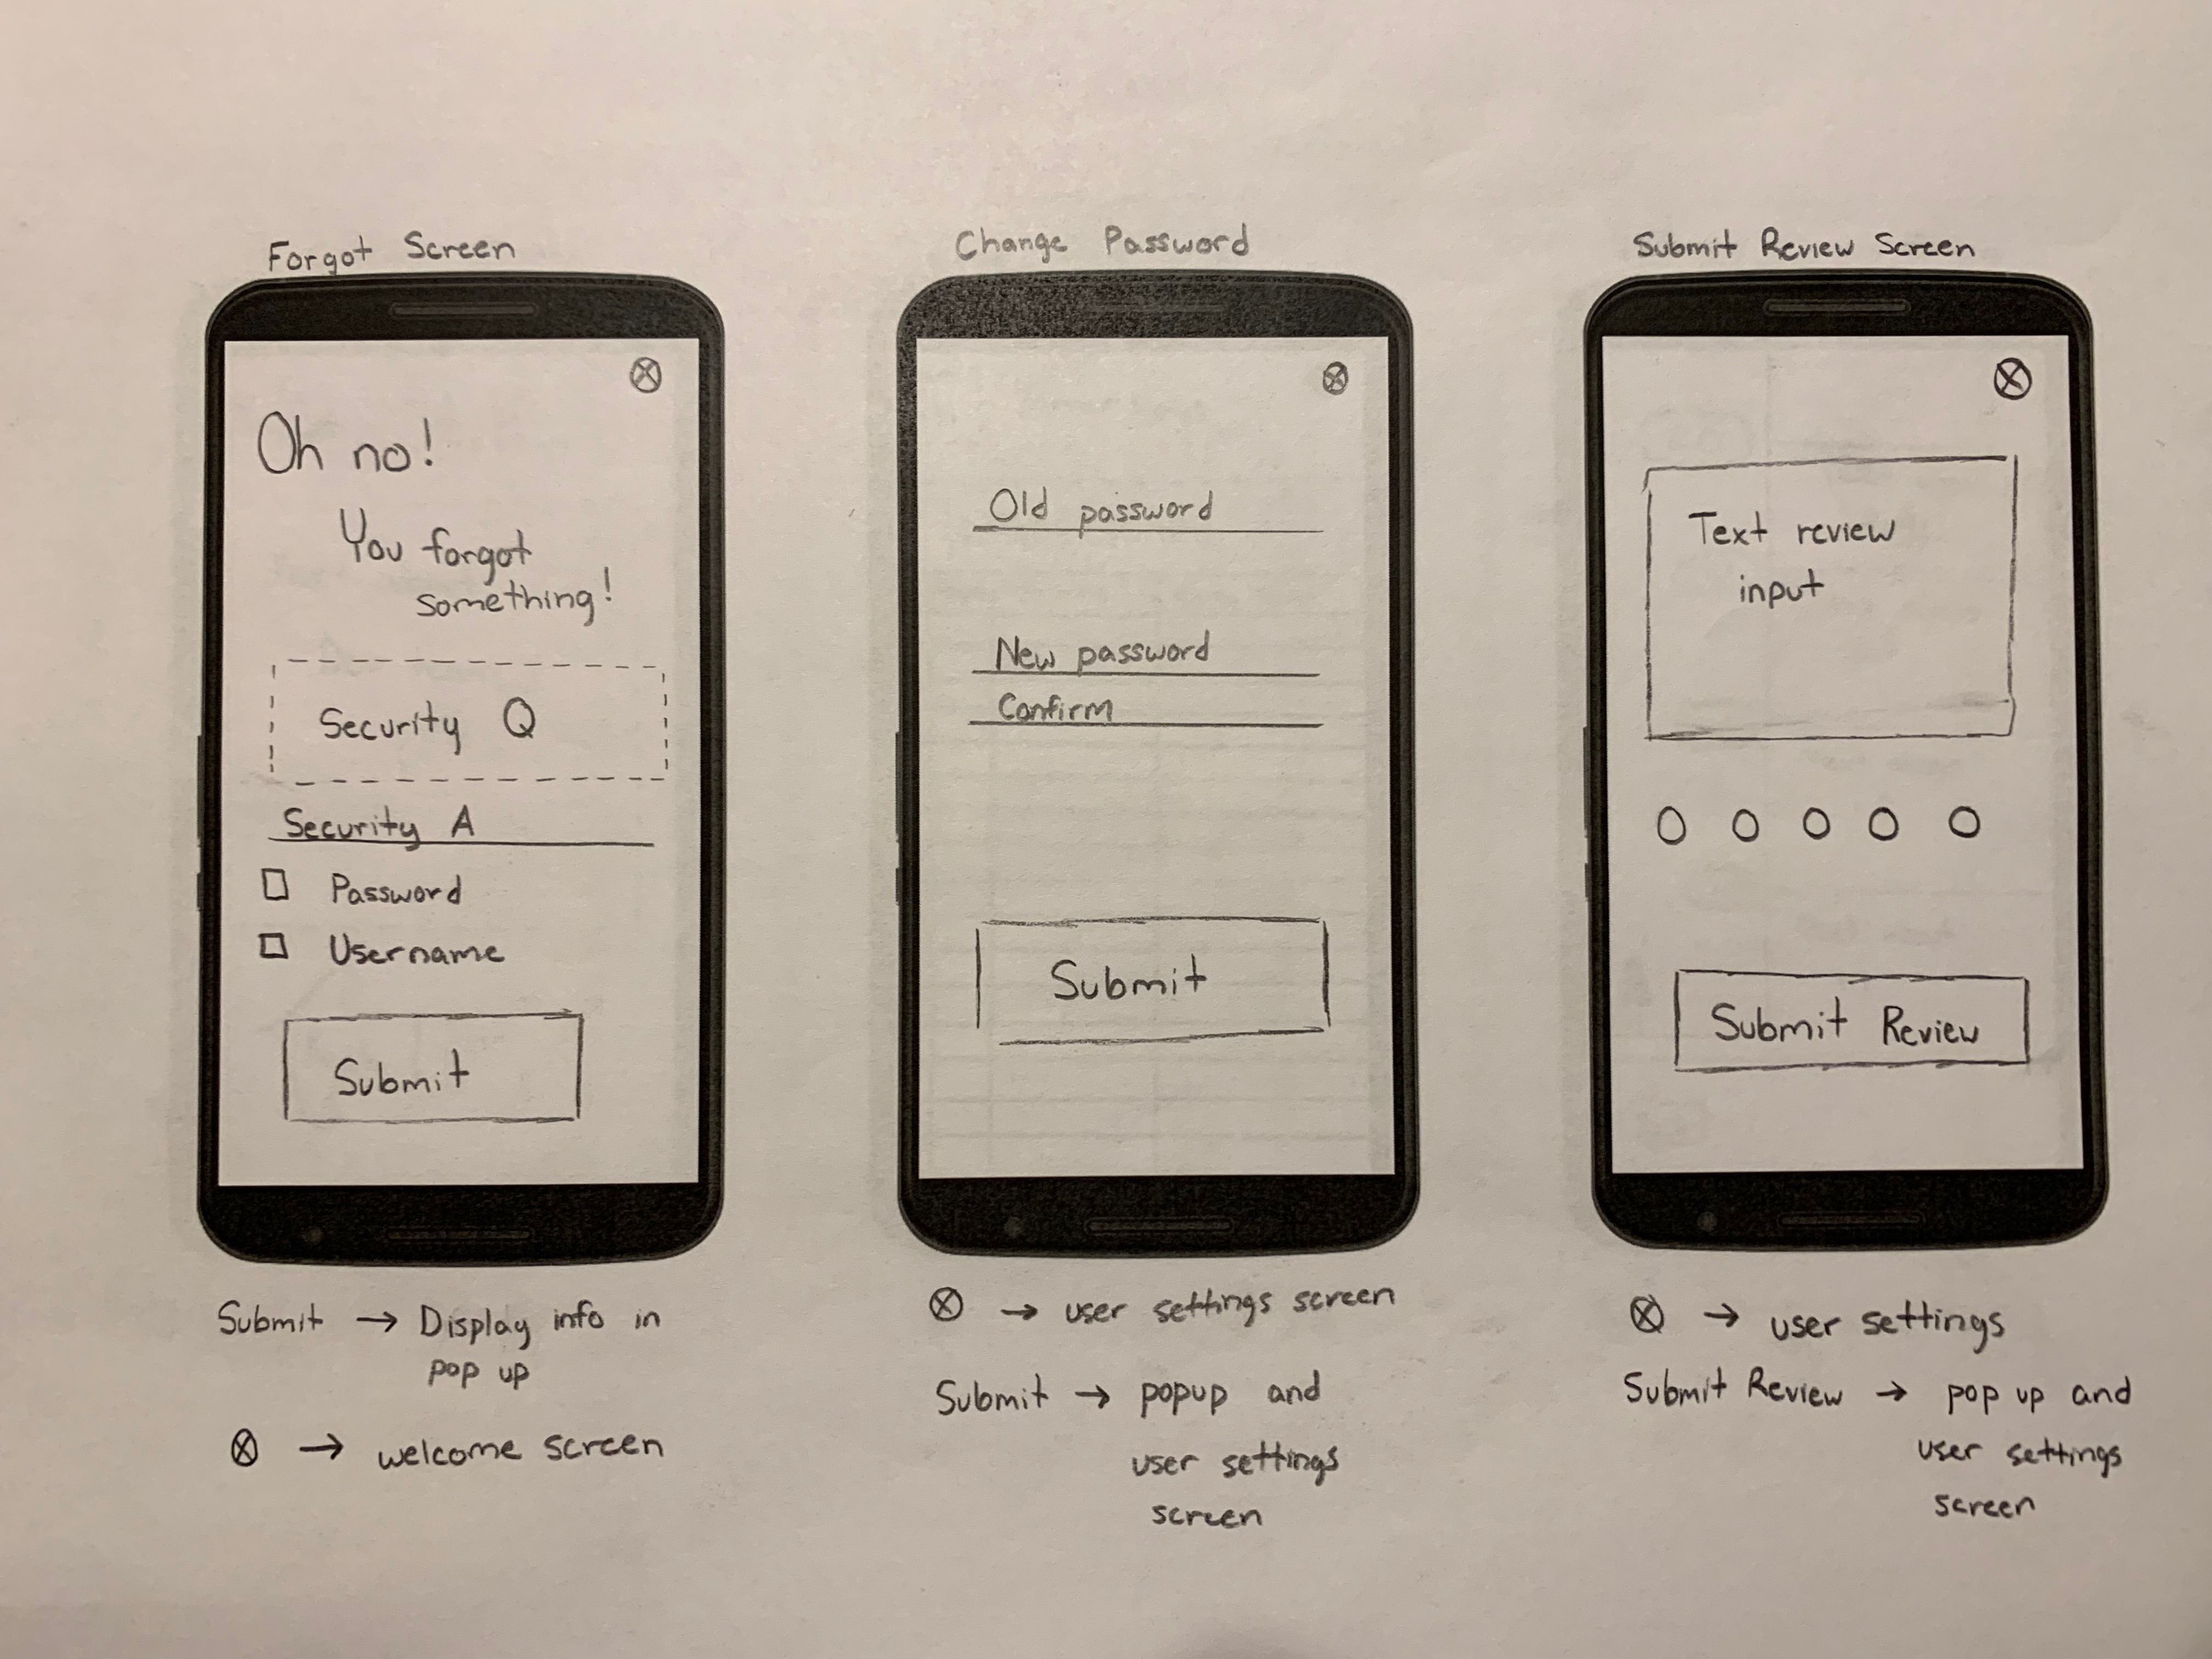 Forgot Screen
⊗
Oh no!
You forgot
something!
Security Q
Security A
Password
Username
Submit
Submit → Display info in
pop up
⊗ → welcome screen
Change Password
⊗
Old password
New password
Confirm
Submit
⊗ → user settings screen
Submit → popup and
user settings
screen
Submit Review Screen
⊗
Text review
input
Submit Review
⊗ → user settings
Submit Review → pop up and
user settings
screen